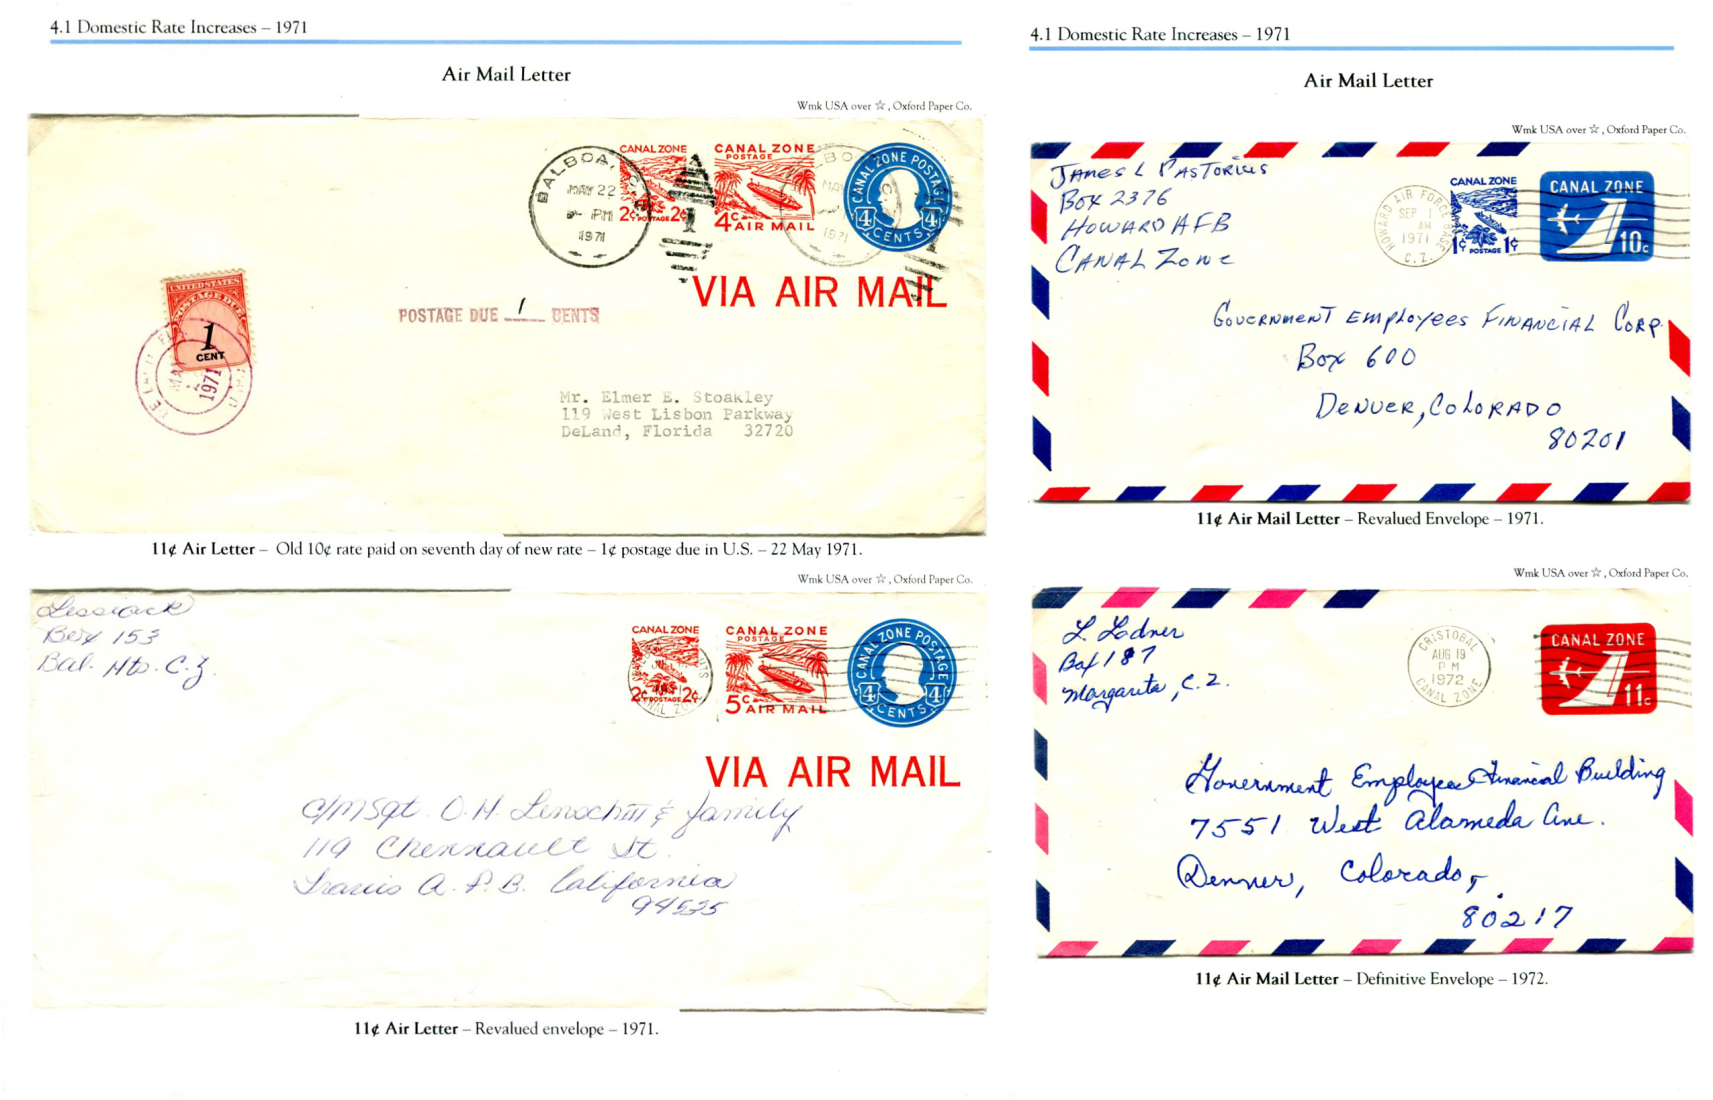 4.1 Domestic Rate Increases – 1971
Air Mail Letter
Wmk USA over ☆, Oxford Paper Co.
BALBOA, C.
MAY 22
PM
1971
CANAL ZONE
2¢ POSTAGE 2¢
CANAL ZONE
POSTAGE
4¢ AIR MAIL
CANAL ZONE POSTAGE
4 4
CENTS
1971
VIA AIR MAIL
UNITED STATES
POSTAGE DUE
1
CENT
1971
POSTAGE DUE 1 CENTS
Mr. Elmer E. Stoakley
119 West Lisbon Parkway
DeLand, Florida 32720
11¢ Air Letter – Old 10¢ rate paid on seventh day of new rate – 1¢ postage due in U.S. – 22 May 1971.
Wmk USA over ☆, Oxford Paper Co.
Lessiack
Box 153
Bal. Hts. C.Z.
CANAL ZONE
2¢ POSTAGE 2¢
CANAL ZONE
POSTAGE
5¢ AIR MAIL
CANAL ZONE POSTAGE
4 4
CENTS
VIA AIR MAIL
c/MSgt. O.H. & family
119 Chennault St.
Travis A.F.B. California
94535
11¢ Air Letter – Revalued envelope – 1971.
4.1 Domestic Rate Increases – 1971
Air Mail Letter
Wmk USA over ☆, Oxford Paper Co.
James L Pastorius
Box 2376
Howard AFB
Canal Zone
HOWARD AIR FORCE BASE
SEP 1
AM
1971
C. Z.
CANAL ZONE
1¢ POSTAGE 1¢
CANAL ZONE
10c
Government Employees Financial Corp.
Box 600
Denver, Colorado
80201
11¢ Air Mail Letter – Revalued Envelope – 1971.
Wmk USA over ☆, Oxford Paper Co.
L. Lodner
Box 187
Margarita, C.Z.
CRISTOBAL
AUG 19
PM
1972
CANAL ZONE
CANAL ZONE
11c
Government Employees Financial Building
7551 West Alameda Ave.
Denver, Colorado,
80217
11¢ Air Mail Letter – Definitive Envelope – 1972.